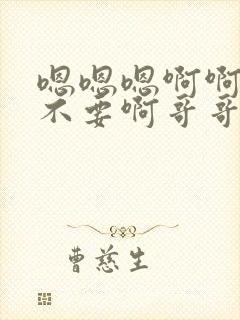 嗯嗯嗯啊啊
不要啊哥哥
曹慈生